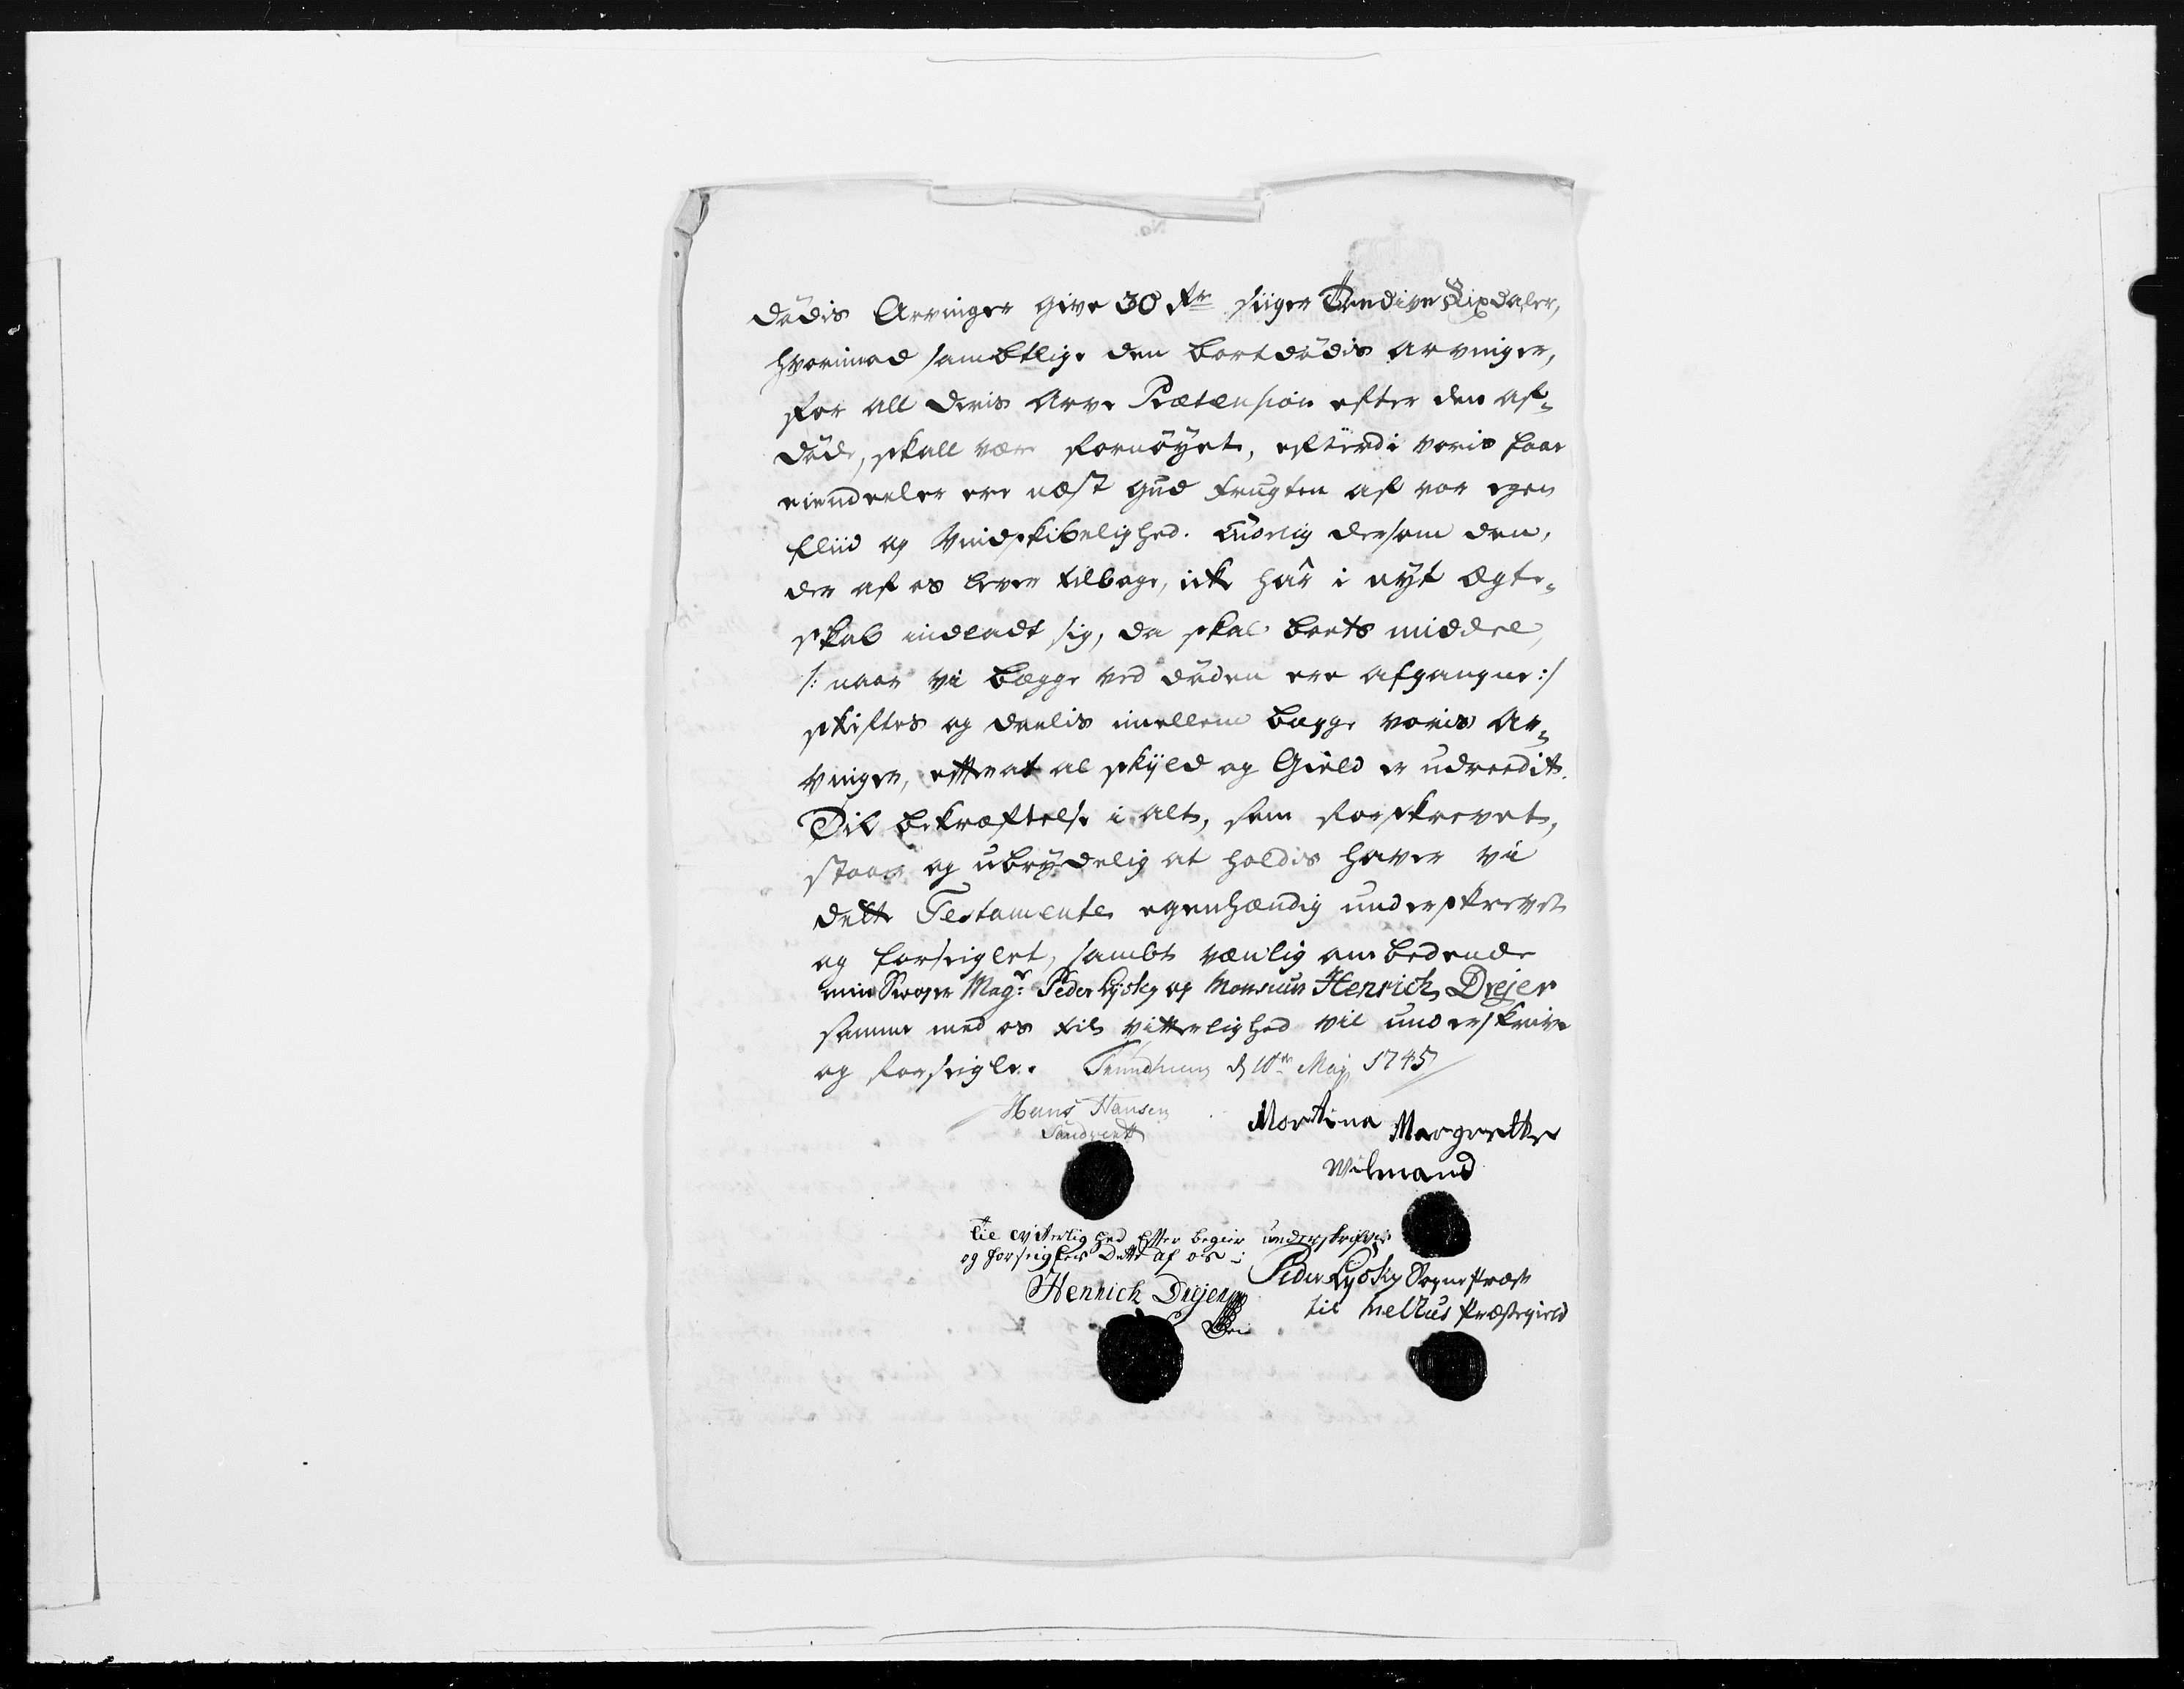 dödis Arvinger give 30 Rr siiger Tredive Rixdaler,
hvorimod sambtlige den bortdödis arvinger,
for all deris Arve Prætension efter den af-
döde, skall være fornöyet, efterdi voris faae
eiendeeler ere næst Gud frugten af vor egen
fliid og Vindskibelighed. Endelig dersom den,
der af os lever tilbage, icke har i nyt Ægte-
skab indladt sig, da skal boets middel,
/: naar vi begge ved döden ere afgangne :/
skiftes og deelis imellem begge voris Ar-
vinger, efterat al skyld og Gield er udreedit.
Til bekræftelse i alt, som forskrevet
staar og ubrydelig at holdis haver vi
dette Testamente egenhændig underskrevet
og forseiglet, sambt venlig ombedende
min Svoger Magr: Peder Lysky og Monsieur Henrich Drejer
samme med os til vitterlighed vil underskrive
og forseigle. Trundhiem d 10de Maj 1745
Hans Hansen Mortina Margrethe
Wilmand
til vitterlighed Efter begier underskrifves
og forseigles Dette af os
Henrich Drejer Peder Lysky Sognepræst
til Melhus Præstegield